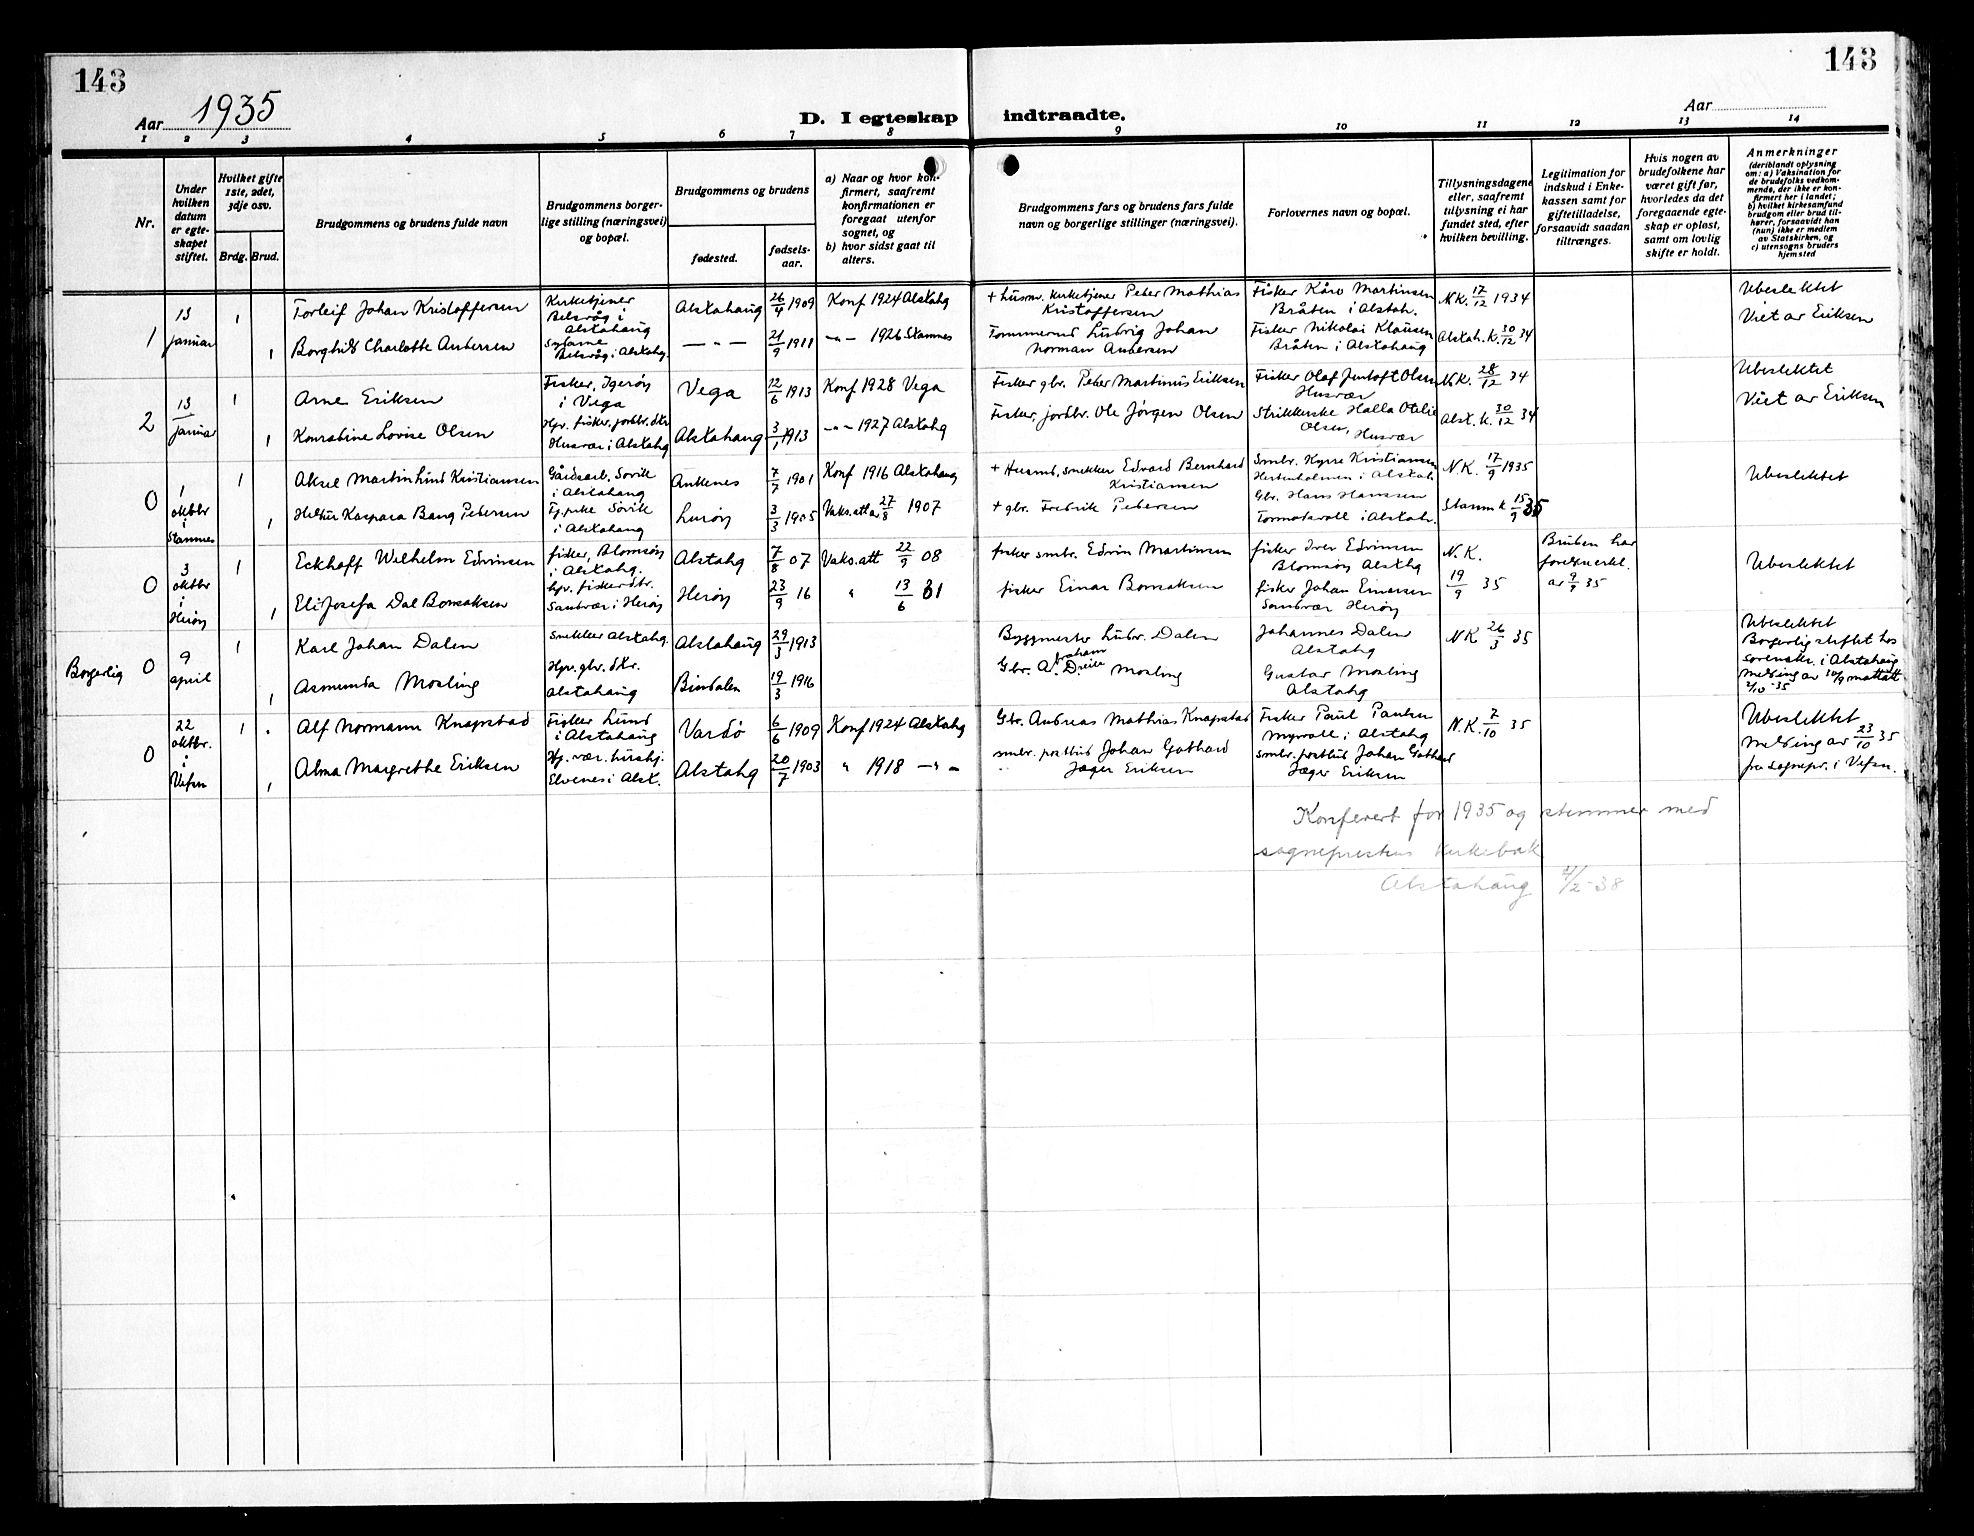 143
143
Aar 1935
D. I egteskap indtraadte.
Aar
1 2 3 4 5 6 7 8 9 10 11 12 13 14
Nr.
Under hvilken datum er egteskapet stiftet.
Hvilket gifte 1ste, 2det, 3dje osv.
Brdg. Brud.
Brudgommens og brudens fulde navn
Brudgommens borgerlige stilling (næringsvei) og bopæl.
Brudgommens og brudens
fødested.
fødselsaar.
a) Naar og hvor konfirmert, saafremt konfirmationen er foregaat utenfor sognet, og
b) hvor sidst gaat til alters.
Brudgommens fars og brudens fars fulde navn og borgerlige stillinger (næringsvei).
Forlovernes navn og bopæl.
Tillysningsdagene eller, saafremt tillysning ei har fundet sted, efter hvilken bevilling.
Legitimation for indskud i Enkekassen samt for giftetilladelse, forsaavidt saadan tiltrænges.
Hvis nogen av brudefolkene har været gift før, hvorledes da det foregaaende egteskap er opløst, samt om lovlig skifte er holdt.
Anmerkninger
(deriblandt oplysning om: a) Vaksination for de brudefolks vedkommende, der ikke er konfirmert her i landet;
b) hvilket kirkesamfund brudgom eller brud tilhører, forsaavidt han (hun) ikke er medlem av Statskirken, og
c) utensogns bruders hjemsted
1
13 januar
1
Torleif Johan Kristoffersen
Kirketjener Belsvåg i Alstahaug
Alstahaug
26/4 1909
Konf 1924 Alstahg
+ husm. kirketjener Peter Mathias Kristoffersen
Fisker Kåre Martinsen Bråten i Alstah.
N.K. 17/12 1934
Ubeslektet
Viet av Eriksen
1
Borghild Charlotte Andersen
Syerske Belsvåg i Alstahg.
— " —
21/9 1911
—"— 1926 Stamnes
Tømmermd Ludvig Johan Norman Andersen
Fisker Nikolai Klausen Bråten i Alstahaug
Alstah. k. 30/12 34
2
13 januar
1
Arne Eriksen
Fisker, Igerøy i Vega
Vega
12/6 1913
Konf 1928 Vega
Fisker gbr. Peder Martinus Eriksen
Fisker Olaf Jentoft Olsen Husvær
N.K. 28/12 34
Ubeslektet
Viet av Eriksen
1
Konradine Lovise Olsen
Hpr. fisker, jordbr. dtr Husvær i Alstahg
Alstahaug
3/1 1913
—"— 1927 Alstahg
Fisker, jordbr. Ole Jørgen Olsen
Strikkerske Halla Otelie Olsen, Husvær
Alst. k. 30/12 34
0
1 oktbr i Stamnes
1
Aksel Martin Lind Kristiansen
Gårdsarb. Søvik i Alstahaug
Ankenes
7/7 1901
Konf 1916 Alstahaug
+ Husmd, snekker Edvard Bernhard Kristiansen
Smbr. Hyrre Kristiansen i Alstah.
N.K. 17/9 1935
Ubeslektet
1
Kaspara Bang Pedersen
Tj.pike Søvik i Alstahaug
Lurøy
3/3 1905
Vaks.att av 27/8 1907
+ gbr. Fredrik Pedersen
Gbr. Hans Hanssen i Alstah.
Stamn k 15/9 35
0
3 oktbr i Herøy
1
Eckhoff Wilhelm Edvinsen
fisker, Blomsøy i Alstahg.
Alstahg
7/8 07
Vaks.att 22/9 08
fisker smbr. Edvin Martinsen
fisker Iver Edvinsen Blomsøy Alsthg
N.K. 19/9 35
Bruden har av 9/9 35
Ubeslektet
1
Eli Josefa Dal Bonsaksen
hpr. fiskerdtr. Sandvær i Herøy
Herøy
23/9 16
" 13/6 31
fisker Einar Bonsaksen
fisker Johan Einarsen Sandvær Herøy
Borgerlig
0
9 april
1
Karl Johan Dalen
Snekker Alstahg.
Alstahaug
29/3 1913
Byggmester Ludv. Dalen
Johannes Dalen Alstahg
N.K. 26/3 35
Ubeslektet
Borgerlig stiftet hos sorenskr. i Alstahaug
Melding av 30/9 mottatt 2/10 - 35
1
Asmunda Mosling
Hpr. gbr. dtr. Alstahaug
Bindalen
19/3 1916
Gbr. Abraham Mosling
Gustav Mosling Alstahg
0
22 oktbr. i Vefsn
1
Alf Normann Knapstad
Fisker Lund i Alstahaug
Vardø
6/6 1909
Konf 1924 Alstahg
Gbr. Andreas Mathias Knapstad
Fisker Paul Paulsen Myrvoll i Alstahg
N.K. 7/10 35
Ubeslektet
Melding av 23/10 35 fra sognepr. i Vefsn.
1
Alma Margrethe Eriksen
Elvenes i Alst.
Alstahg
20/7 1903
" 1918 —"—
smbr. postbud Johan Gothard Jæger Eriksen
smbr. postbud Johan Gothard Jæger Eriksen
Konferert for 1935 og stemmer med
sogneprestens kirkebok
Alstahaug 4/2-38